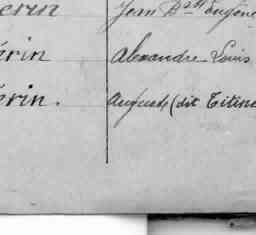 erin Jean Bte Eugène
érin Alexandre Louis
érin. Auguste (dit Titine